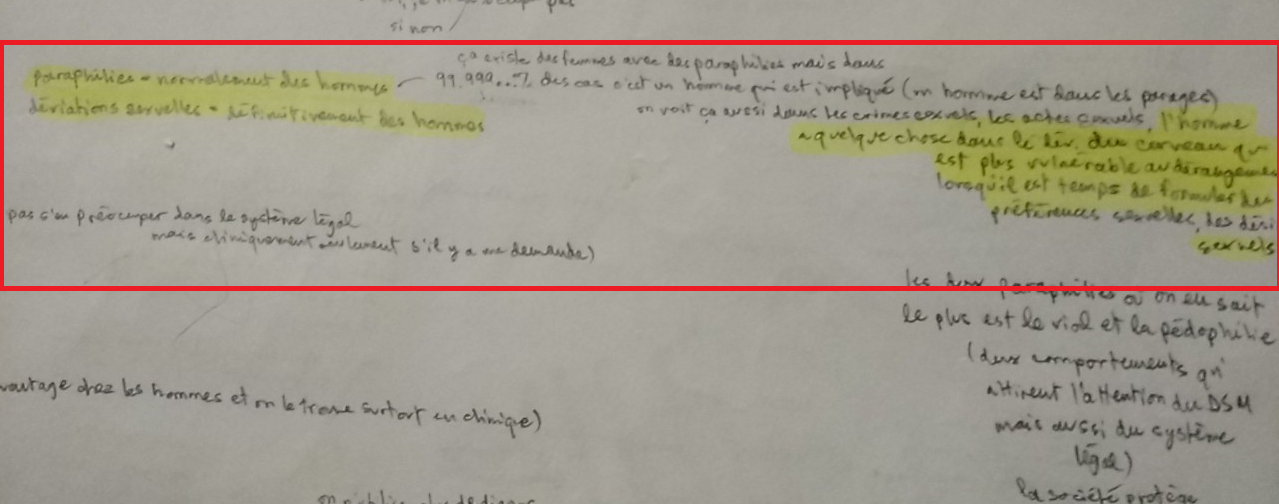 si non
ça existe des femmes avec des paraphilies mais dans
paraphilies = normalement des hommes — 99.999...% des cas c'est un homme qui est impliqué (un homme est dans les parages)
déviations sexuelles = définitivement des hommes
on voit ça aussi dans les crimes sexuels, les actes sexuels, l'homme
a quelque chose dans le dév. du cerveau qui
est plus vulnérable au dérangement
lorsqu'il est temps de formuler des
préférences sexuelles, des dési
sexuels
pas s'en préocuper dans le système légal
mais cliniquement seulement s'il y a une demande)
les deux paraphilies où on en sait
le plus est le viol et la pédophilie
(deux comportements qu'
attirent l'attention du DSM
mais aussi du système
légal)
vantage chez les hommes et on le trouve surtout en clinique)
la société protège